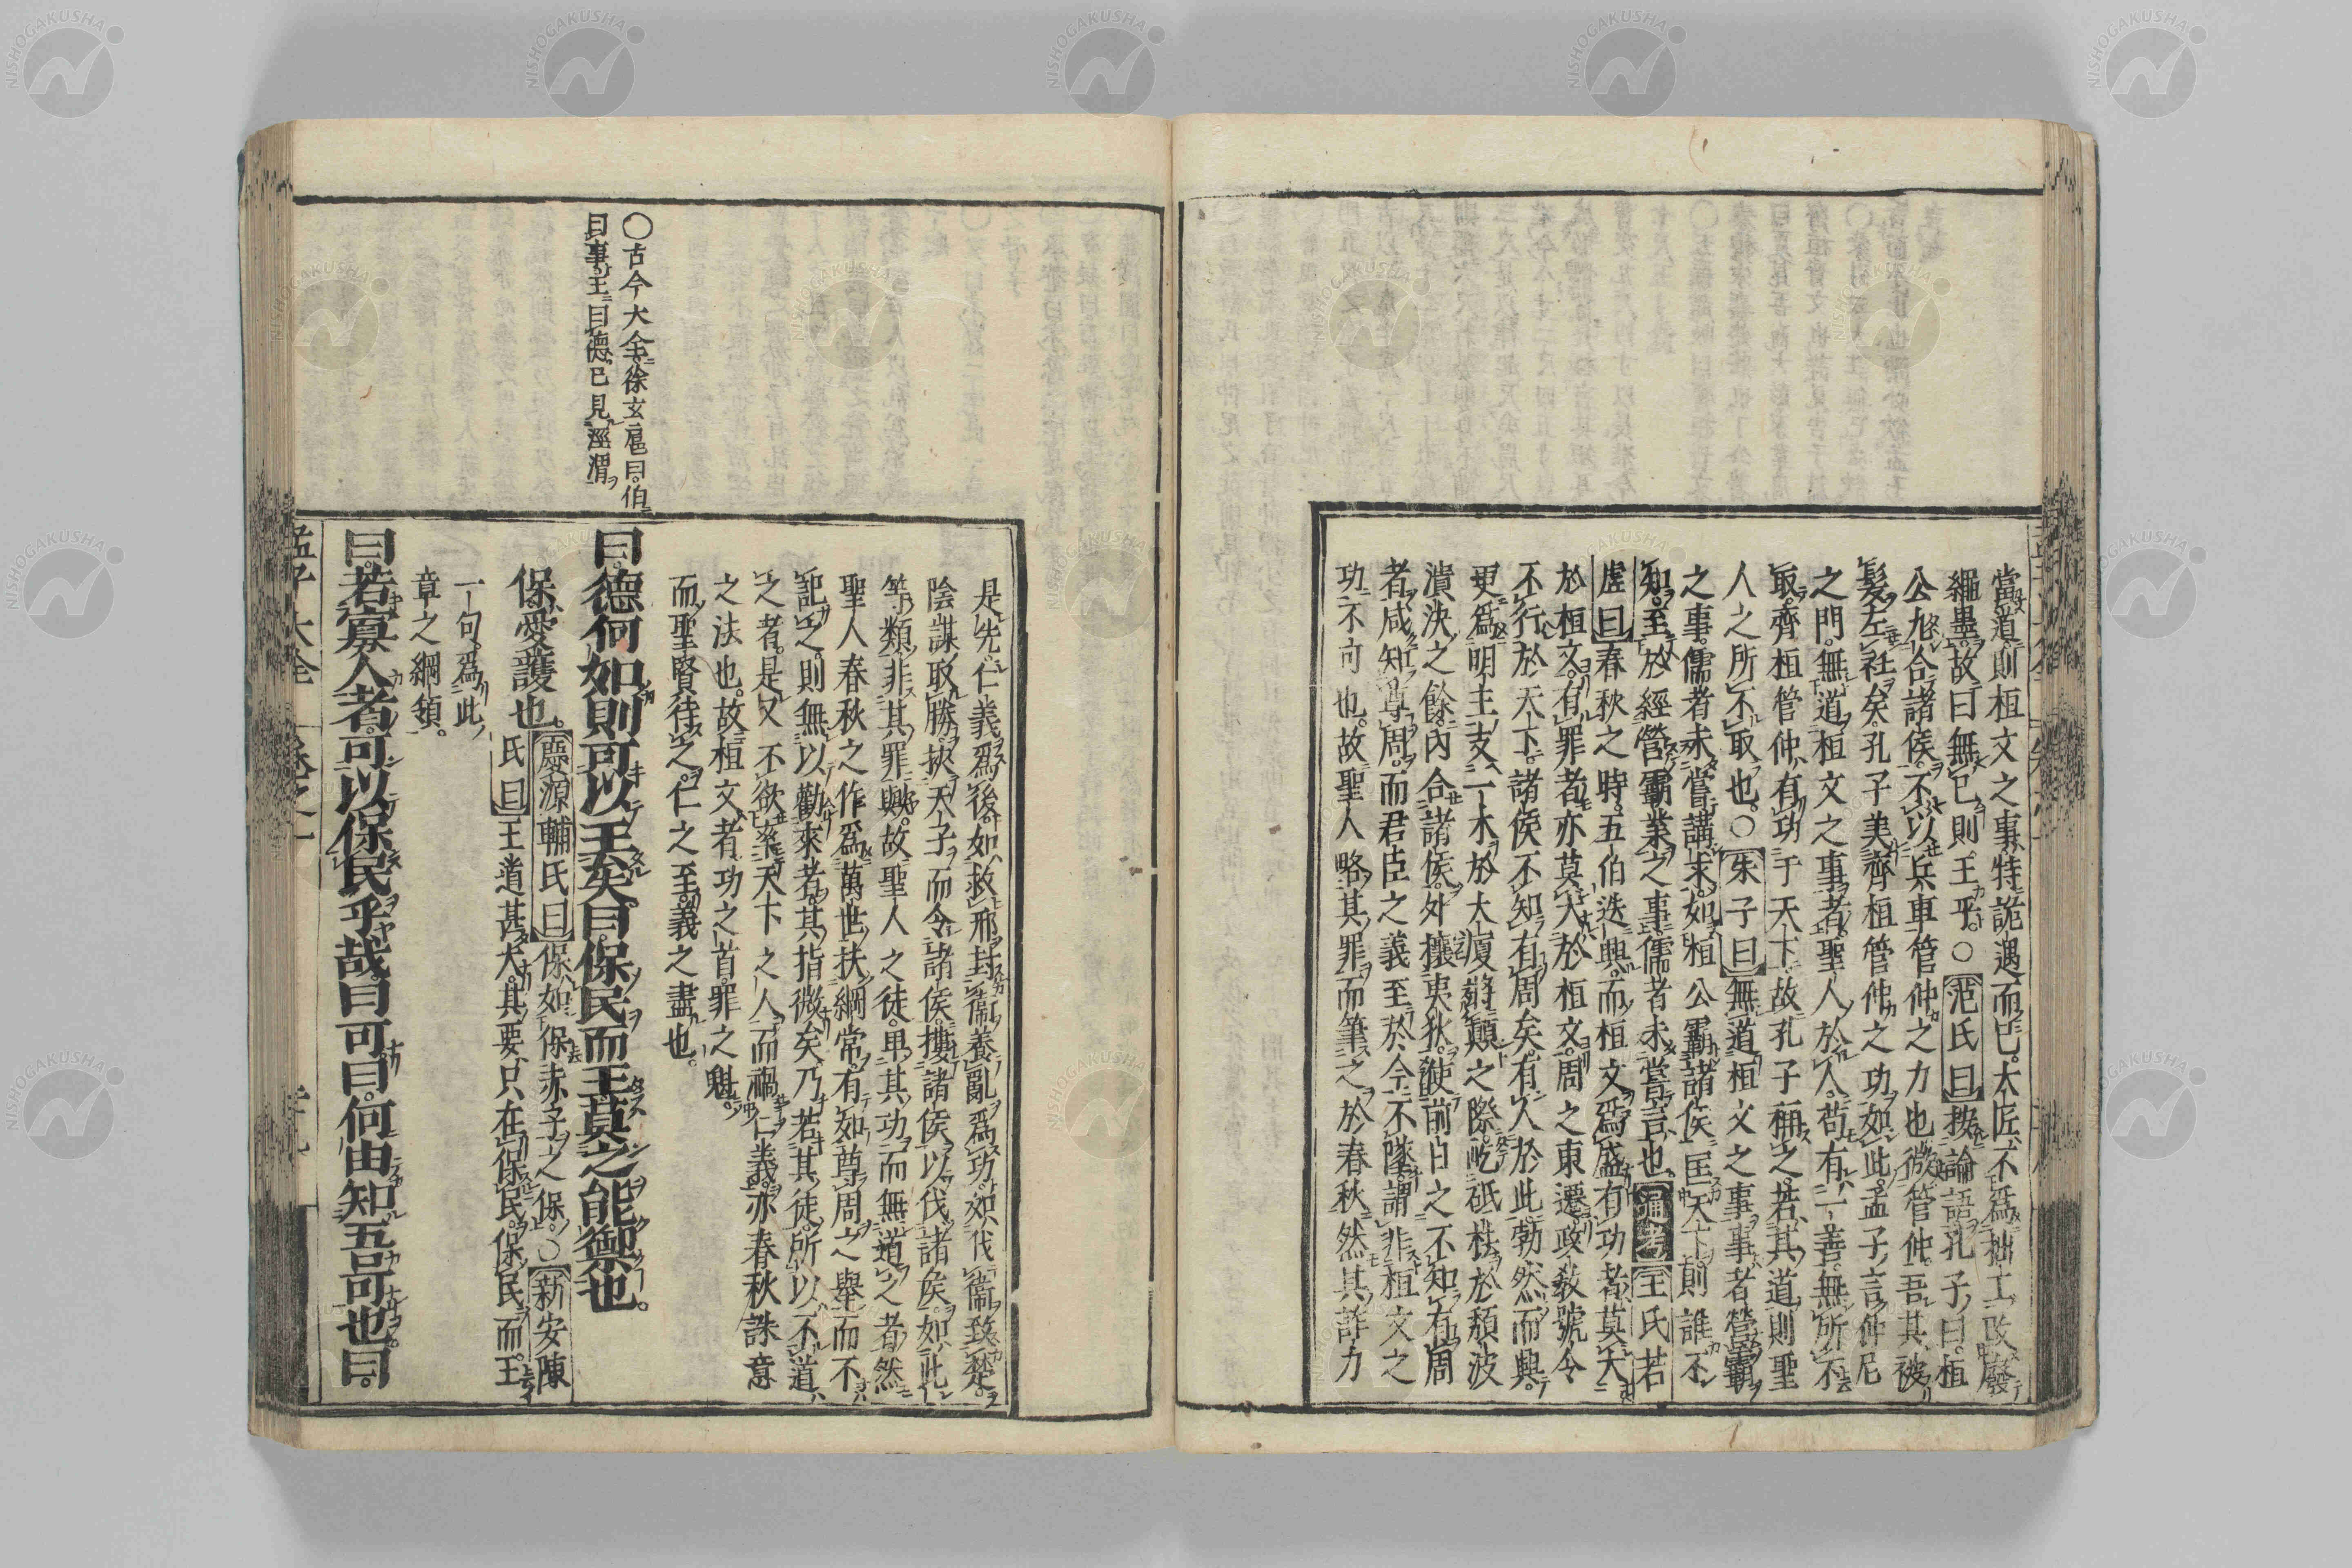 當道則桓文之事特詭遇而已大匠不爲拙工改廢
繩墨故曰無已則王乎○范氏曰按論語孔子曰桓
公九合諸侯不以兵車管仲之力也微管仲吾其被
髮左衽矣孔子美齊桓管仲之功如此孟子言仲尼
之門無道桓文之事者聖人於人苟有一善無所不
取齊桓管仲有功于天下故孔子稱之若其道則聖
人之所不取也○朱子曰無道桓文之事事者營霸
之事儒者未嘗講求如桓公霸諸侯匡天下則誰不
知至於經營霸業之事儒者未嘗言也通考王氏若
虛曰春秋之時五伯迭興而桓文爲盛有功者莫大
於桓文有罪者亦莫大於桓文周之東遷政敎號令
不行於天下諸侯不知有周矣有人於此勃然而興
更爲明主支一木於大廈將顛之際屹砥柱於頽波
潰決之餘內合諸侯外攘夷狄使前日之不知有周
者咸知尊周而君臣之義至於今不墜謂非桓文之
功不可也故聖人略其罪而筆之於春秋然其詐力
是先仁義爲後如救邢封衞養亂爲功如伐衞致楚
陰謀取勝挾天子而令諸侯摟諸侯以伐諸侯如此
等類非其罪與故聖人之徒卑其功而無道之者然
聖人春秋之作爲萬世扶綱常有如尊周之舉而不
記之則無以勸來者其指微矣乃若其徒所以不道
之者是又不欲率天下之人而禍仁義亦春秋誅意
之法也故桓文者功之首罪之魁
而聖賢待之仁之至義之盡也
○古今大全徐玄扈曰伯
曰事王曰德已見涇渭
曰德何如則可以王矣曰保民而王莫之能禦也
保愛護也慶源輔氏曰保如保赤子之保○新安陳
氏曰王道甚大其要只在保民保民而王
一句爲此
章之綱領
曰若寡人者可以保民乎哉曰可曰何由知吾可也曰
孟子大全 卷之一